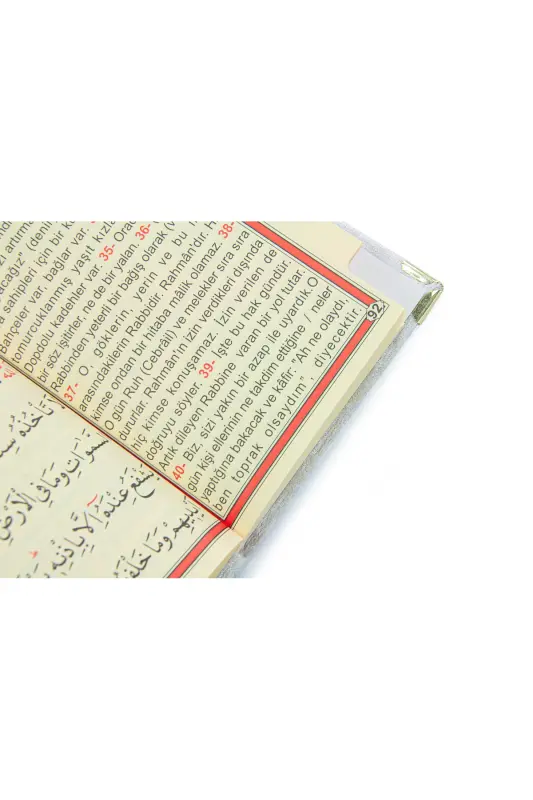 zi artırma
acağız" (denir
sahipleri için bir k
Bahçeler var, bağlar var.
tomurcuklanmış yaşıt kızla
Dopdolu kadehler var. 35- Orad
bir söz işitirler, ne de bir yalan. 36-
Rabbinden yeterli bir bağış olarak (v
37- O, göklerin, yerin ve bu i
arasındakilerin Rabbidir. Rahmân'dır. H
kimse ondan bir hitaba mâlik olamaz. 38-
O gün Ruh (Cebrâil) ve melekler sıra sıra
dururlar. Rahmân'ın izin verdikleri dışında
hiç kimse konuşamaz. İzin verilen de
doğruyu söyler. 39- İşte bu hak gündür.
Artık dileyen Rabbine varan bir yol tutar.
40- Biz, sizi yakın bir azap ile uyardık. O
gün kişi ellerinin ne takdim ettiğine / neler
yaptığına bakacak ve kâfir: "Ah ne olaydı,
ben toprak olsaydım" diyecektir.
92
تَأْخُذُهُ سِنَ
سَّمٰوَاتِ وَمَا فِى الْاَرْضِ
يَشْفَعُ عِنْدَهُٓ اِلَّا بِاِذْنِه۪
اَيْد۪يهِمْ وَمَا خَلْفَ